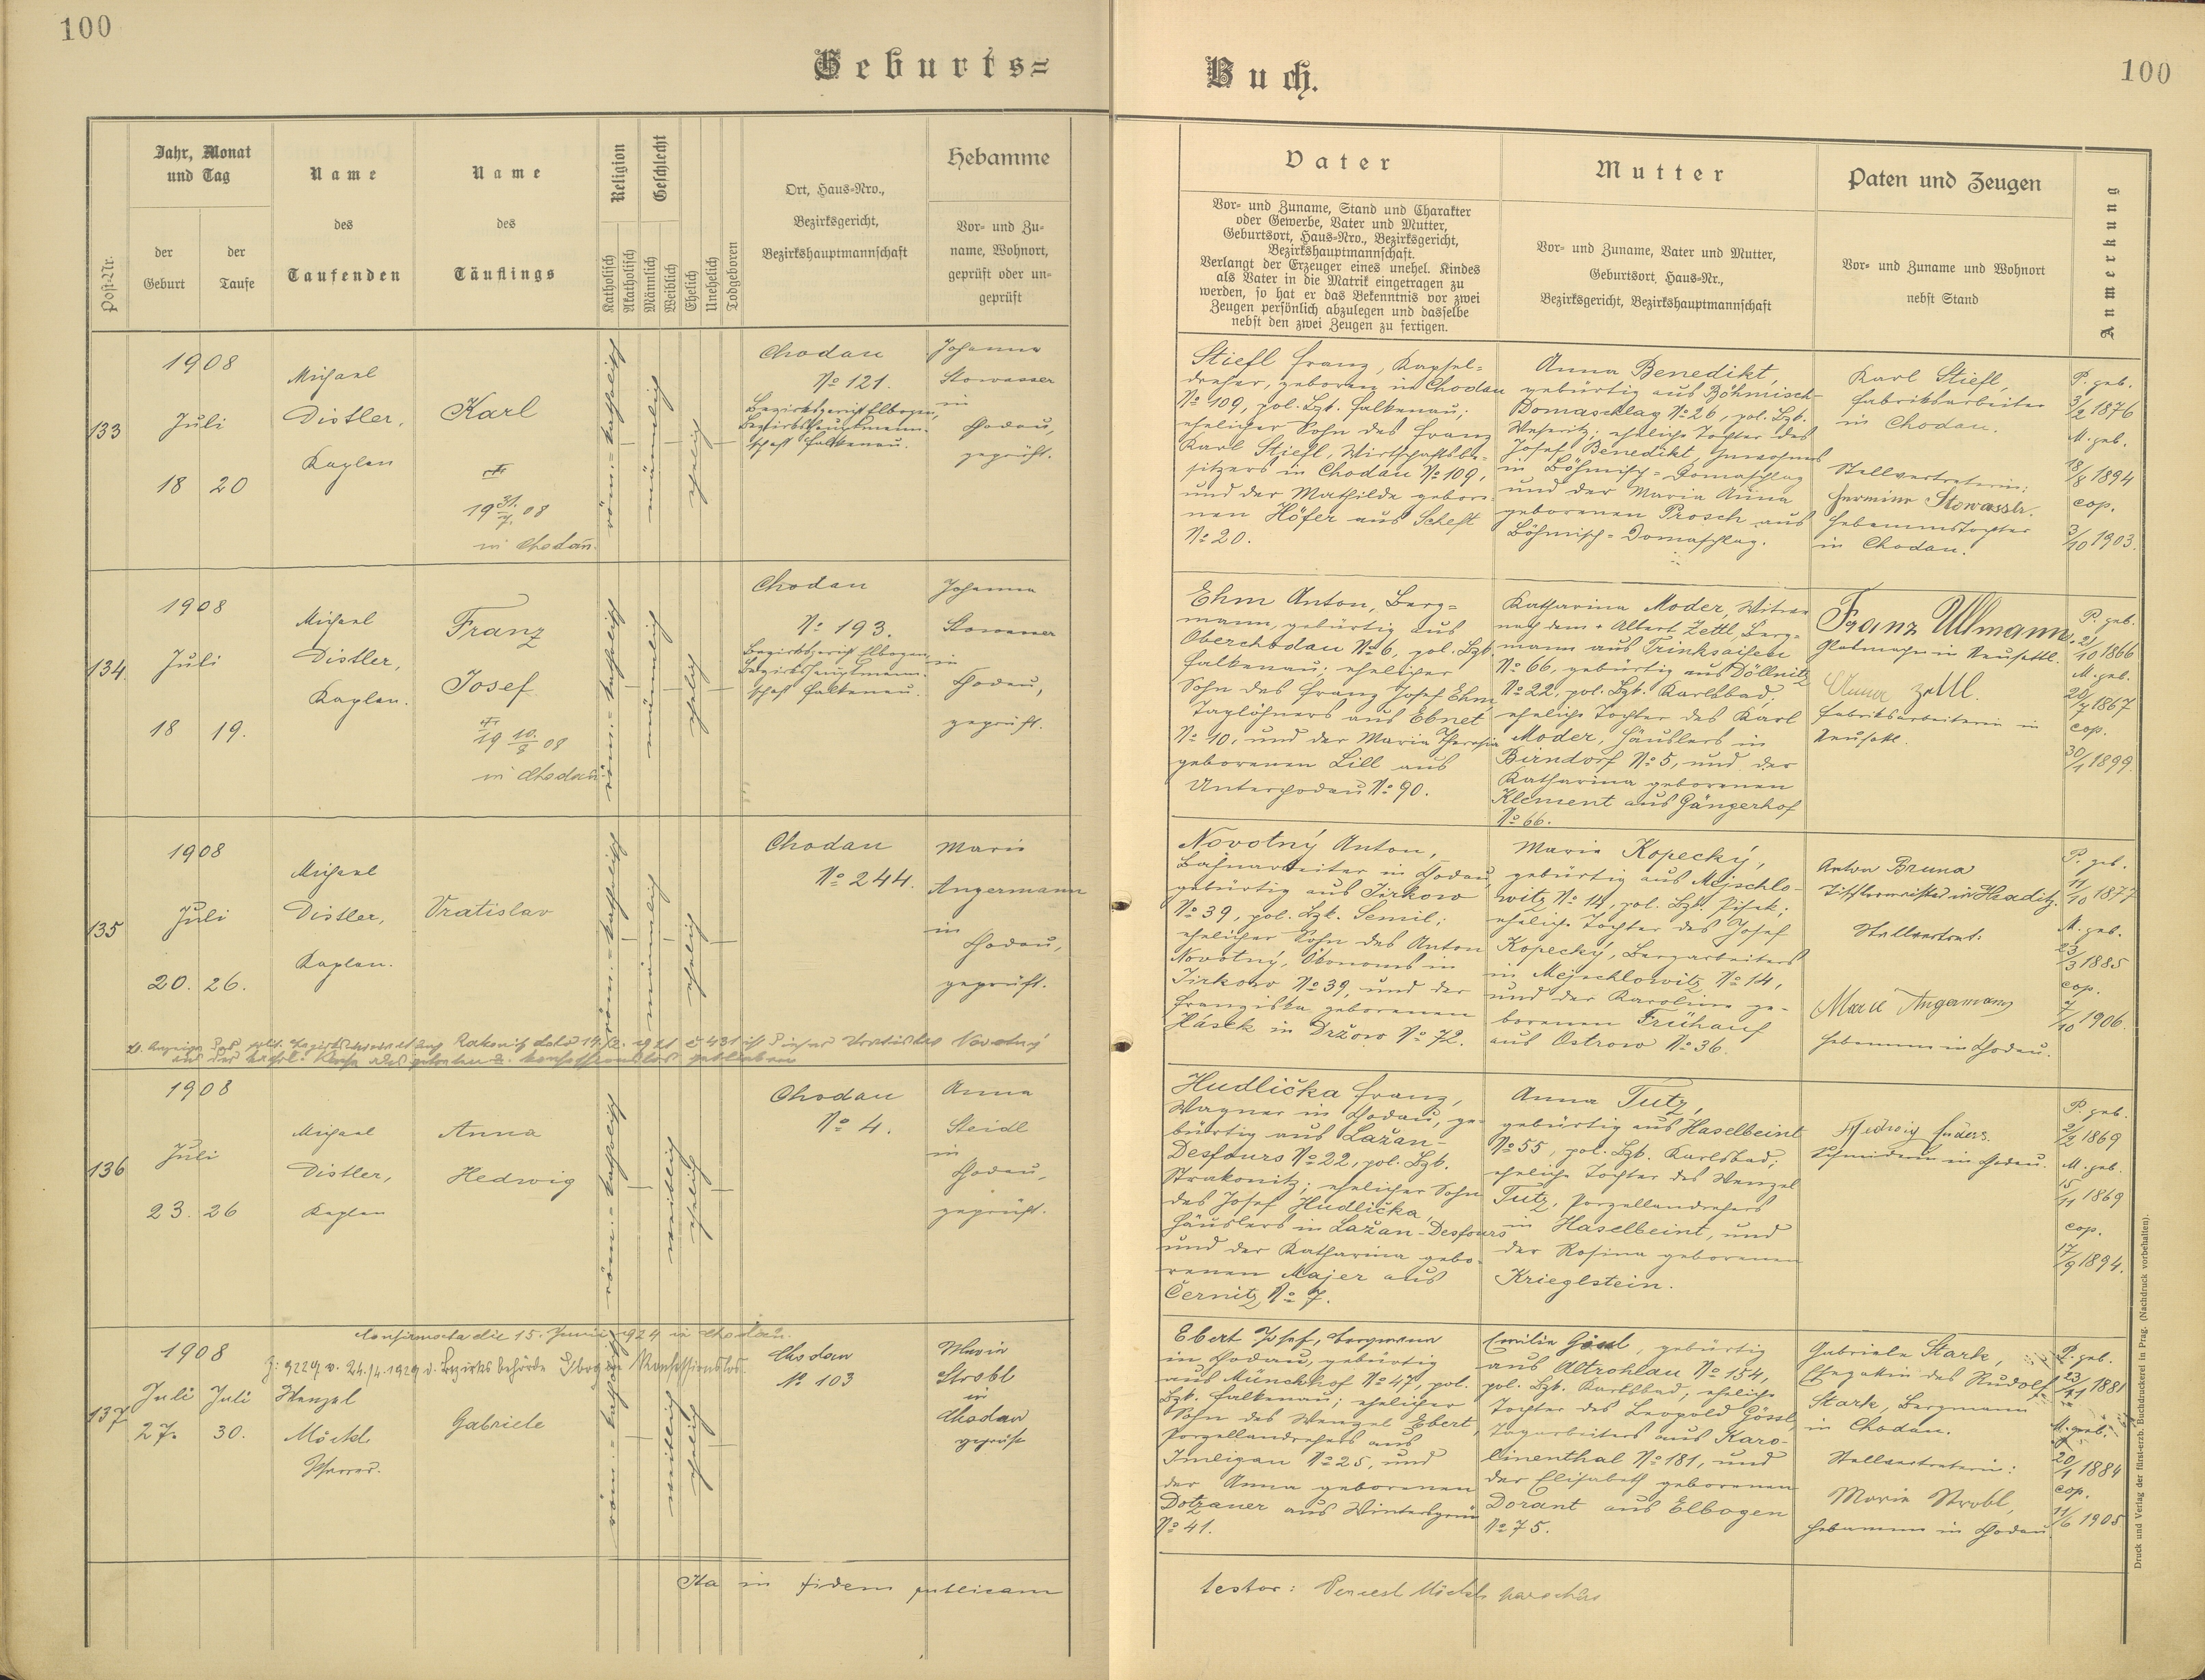 100
Geburts=
Jahr, Monat
und Tag
Name
Name
Religion
Geschlecht
Ort, Haus=Nro.,
Bezirksgericht,
Bezirkshauptmannschaft
Hebamme
Post=Nr.
der
Geburt
der
Taufe
des
Taufenden
des
Täuflings
Katholisch
Akatholisch
Männlich
Weiblich
Ehelich
Unehelich
Todgeboren
Vor= und Zu=
name, Wohnort,
geprüft oder un=
geprüft
133
1908
Juli
18 20
Michael
Distler,
Kaplan
Karl
19 31./7. 08
in Chodau.
röm.=katholisch
männlich
ehelich
Chodau
No 121.
Bezirksgericht Elbogen,
Bezirkshauptmann=
schaft Falkenau.
Johanna
Stowasser
in
Chodau,
geprüft.
134
1908
Juli
18 19.
Michael
Distler,
Kaplan.
Franz
Josef
19 10./8 08
in Chodau
röm.=katholisch
männlich
ehelich
Chodau
No 193.
Bezirksgericht Elbogen,
Bezirkshauptmann=
schaft Falkenau.
Johanna
Stowasser
in
Chodau,
geprüft.
135
1908
Juli
20. 26.
Michael
Distler,
Kaplan.
Vratislav
röm.=katholisch
männlich
ehelich
Chodau
No 244.
Marie
Angermann
in
Chodau,
geprüft.
136
1908
Juli
23. 26
Michael
Distler,
Kaplan
Anna
Hedwig
röm.=katholisch
weiblich
ehelich
Chodau
No 4.
Anna
Steidl
in
Chodau,
geprüft.
Confirmata die 15. Junii 1924 in Chodau.
137
1908
Juli Juli
27. 30.
Wenzel
Möckl
Pfarrer.
Gabriele
röm.=katholisch
weiblich
ehelich
Chodau
No 103
Maria
Strobl
in
Chodau
geprüft
Ita in fidem publicam
Buch.
100
Vater
Vor= und Zuname, Stand und Charakter
oder Gewerbe, Vater und Mutter,
Geburtsort, Haus=Nro., Bezirksgericht,
Bezirkshauptmannschaft.
Verlangt der Erzeuger eines unehel. Kindes
als Vater in die Matrik eingetragen zu
werden, so hat er das Bekenntnis vor zwei
Zeugen persönlich abzulegen und dasselbe
nebst den zwei Zeugen zu fertigen.
Mutter
Vor= und Zuname, Vater und Mutter,
Geburtsort, Haus=Nr.,
Bezirksgericht, Bezirkshauptmannschaft
Paten und Zeugen
Vor= und Zuname und Wohnort
nebst Stand
Anmerkung
Stiefl Franz, Kapsel=
dreher, geboren in Chodau
No 109, pol. Bzk. Falkenau;
ehelicher Sohn des Franz
Karl Stiefl, Wirtschaftsbe=
sitzers in Chodau No 109,
und der Mathilde gebore=
nen Höfer aus Scheft
No 20.
Anna Benedikt,
gebürtig aus Böhmisch=
Domaschlag No 26, pol. Bzk.
Weseritz; eheliche Tochter des
Josef Benedikt, Inwohners
in Böhmisch=Domaschlag
und der Maria Anna
geborenen Prosch aus
Böhmisch=Domaschlag.
Karl Stiefl,
Fabriksarbeiter
in Chodau.
Stellvertreterin:
Hermine Stowasser.
Hebammstochter
in Chodau.
P. geb.
3/2 1876
M. geb.
18/8 1894
cop.
3/10 1903.
Ehm Anton, Berg=
mann, gebürtig aus
Oberchodau No 6, pol. Bzk.
Falkenau; ehelicher
Sohn des Franz Josef Ehm,
Taglöhners aus Ebnet
No 10, und der Maria Theresia
geborenen Lill aus
Unterchodau No 90.
Katharina Moder, Witwe
nach dem + Albert Zettl, Berg=
mann aus Trinksaifen
No 66, gebürtig aus Döllnitz
No 22, pol. Bzk. Karlsbad;
eheliche Tochter des Karl
Moder, Häuslers in
Birndorf No 5, und der
Katharina geborenen
Klement aus Gängerhof
No 66.
Franz Ullmann,
Glasmacher in Neusattl.
Anna Zettl.
Fabriksarbeiterin in
Neusattl.
P. geb.
2/10 1866
M. geb.
20/7 1867
cop.
30/1 1899.
Novotný Anton,
Bahnarbeiter in Chodau,
gebürtig aus Jirkow
No 39, pol. Bzk. Semil;
ehelicher Sohn des Anton
Novotný, Ökonoms in
Jirkow No 39, und der
Franziska geborenen
Hásek in Držow No 72.
Marie Kopecký,
gebürtig aus Mejschlo=
witz No 14, pol. Bzk. Pisek;
eheliche Tochter des Josef
Kopecký, Bergarbeiters
in Mejschlowitz No 14,
und der Karoline ge=
borenen Frühauf
aus Ostrow No 36.
Anton Bruna
Tischlermeister in
Stellvertret:
Marie Angermann
Hebamme in Chodau.
P. geb.
11/10 1877
M. geb.
23/3 1885
cop.
7/10 1906.
Hudlička Franz,
Wagner in Chodau, ge=
bürtig aus Lažan=
Desfours No 22, pol. Bzk.
Strakonitz; ehelicher Sohn
des Josef Hudlička,
Häuslers in Lažan=Desfours
und der Katharina gebo=
renen Majer aus
Černitz No 7.
Anna Tutz,
gebürtig aus Haselbeint
No 55, pol. Bzk. Karlsbad;
eheliche Tochter des Wenzel
Tutz, Porzellandrehers
in Haselbeint, und
der Rosina geborenen
Krieglstein.
Hedwig
Schneiderin in Chodau.
P. geb.
2/2 1869
M. geb.
15/11 1869
cop.
17/9 1894.
Ebert Josef, Bergmann
in Chodau, gebürtig
aus Münchhof No 47, pol.
Bzk. Falkenau; ehelicher
Sohn des Wenzel Ebert,
Porzellandrehers aus
Imligau No 25, und
der Anna geborenen
Dotzauer aus Wintergrün
No 41.
Emilie Gössl, gebürtig
aus Altrohlau No 154,
pol. Bzk. Karlsbad; eheliche
Tochter des Leopold Gössl,
Tagarbeiters aus Karo=
linenthal No 181, und
der Elisabeth geborenen
Dorant aus Elbogen
No 75.
Gabriele Stark,
Ehegattin des Rudolf
Stark, Bergmann
in Chodau.
Stellvertreterin:
Marie Strobl,
Hebamme in Chodau.
P. geb.
23/11 1881
M. geb.
20/1 1884
cop.
11/6 1905
testor: Wenzel Möckl parochus
Druck und Verlag der fürst-erzb. Buchdruckerei in Prag. (Nachdruck vorbehalten).